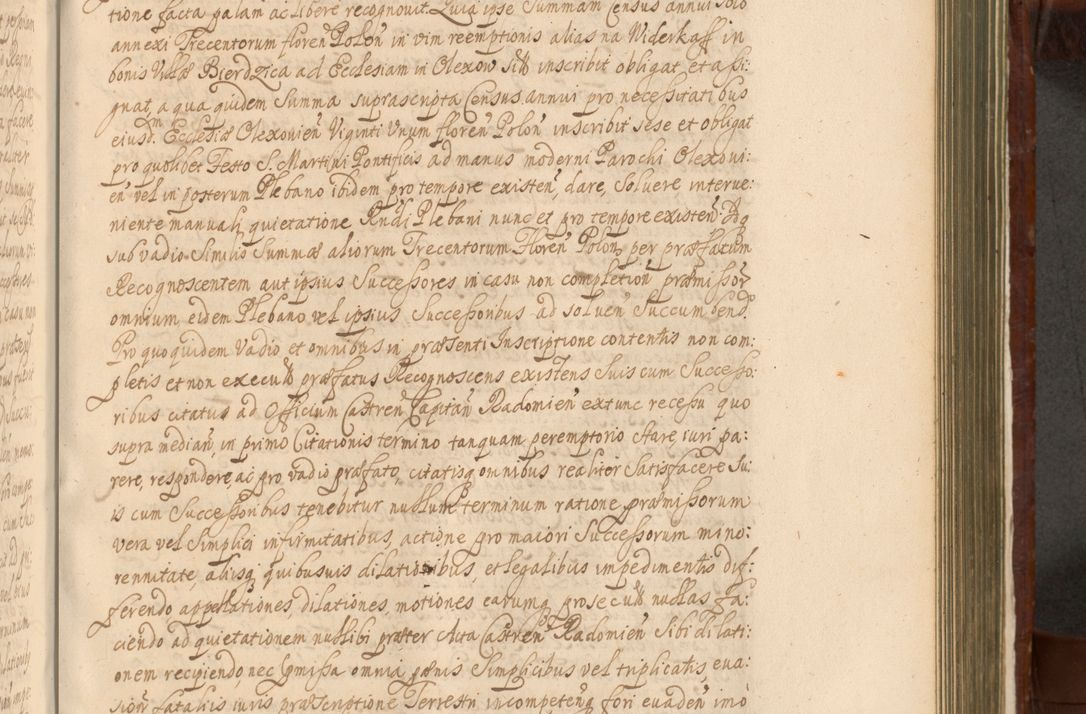 tione facta palam ac libere recognovit. Quia ipse Summam Census annui solo
annexi Trecentorum floren Polon in vim reemptionis alias na Widerkaff in
bonis Villæ Bierdzica ad Ecclesiam in Olexow sitis inscribit obligat et assi:
gnat, a qua quidem Summa suprascripta Census annui pro necessitatibus
eiusdm Ecclesiæ Olexovien Viginti Unum floren Polon inscribit sese et obligat
pro quolibet Festo S. Martini Pontificis ad manus moderni Parochi Olexovi:
en vel in posterum Plebano ibidem pro tempore existen, dare, Soluere interve:
niente manuali quietatione Rndi Plebani nunc et pro tempore existen
sub vadio Similis Summæ aliorum Trecentorum Floren Polon, per præfatum
Recognoscentem aut ipsius Successores in casu non completion præmissor
omnium eidem Plebano vel ipsius Successoribus ad soluen Succumbend.
Pro quo quidem Vadio et omnibus in præsenti Inscriptione contentis non com:
pletis et non executis præfatus Recognoscens existens Suis cum Successo:
ribus citatus ad Officium Castren Capitan Radomien extunc recessu quo
supra median, in primo Citationis termino tanquam peremptorio stare iuri pa:
rere, respondere, ac pro vadio præfato, citatisq omnibus realiter Satisfacere Su:
is cum Successoribus tenebitur nullum terminum ratione præmissorum
vera vel Simplici infirmitatibus, actione pro maiori Successorum mino:
rennitate, aliisq quibusuis dilationibus, et legalibus impedimentis dif:
ferendo appellationes, dilationes, motiones earumq prosecutis nullas fa:
ciendo ad quietationem nullibi præter Acta Castren Radomien Sibi dilati:
onem recipiendo, nec omissa omnia pænis Simplicibus vel triplicatis, eva:
sion fataliis iuris præscriptione Terrestri incompeteng fori evaden imo